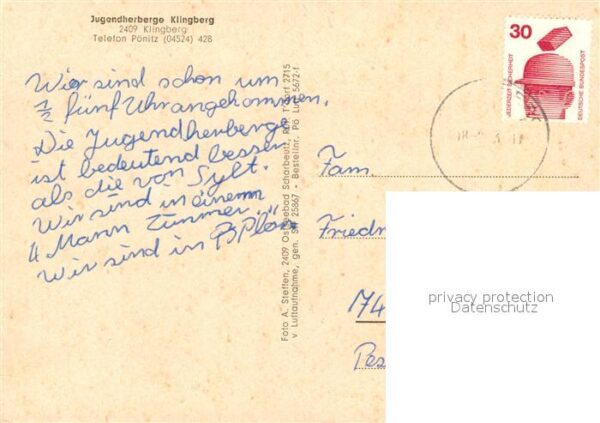 Jugendherberge Klingberg
2409 Klingberg
Telefon Pönitz (04524) 428
Wir sind schon um
1/2 fünf Uhr angekommen.
Die Jugendherberge
ist bedeutend besser
als die von Sylt.
Wir sind in einem
4 Mann Zimmer.
Wir sind in Plön
Foto A. Steffen, 2409 Ostseebad Scharbeutz, Ruf T'dorf 2715
v. Luftaufnahme, gen. SH 25867 • Bestellnr. Pö Luft 5672-f
30
JEDERZEIT SICHERHEIT
DEUTSCHE BUNDESPOST
Fam.
Friedr
74
Pes
privacy protection
Datenschutz